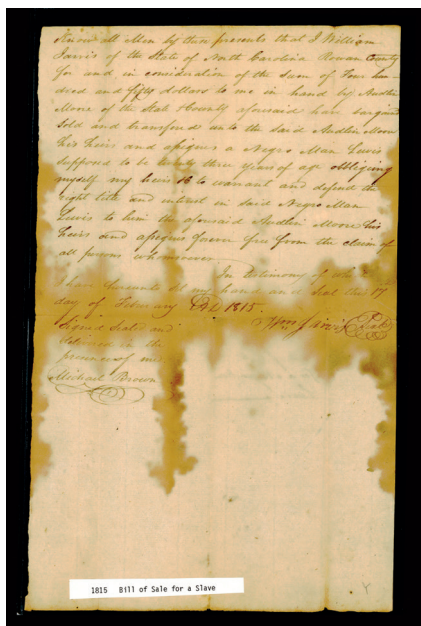 Know all Men by these presents that I William
Jarvis of the State of North Carolina Rowan County
for and in consideration of the sum of Four hun-
dred and fifty dollars to me in hand by
Moore of the State & County aforesaid have bargaind
Sold and transfered unto the said Moore
his heirs and assigns a Negro Man Lewis
Supposed to be twenty three years of age obligeing
myself my heirs to warrant and defend the
right title and interest in Said Negro Man
Lewis to him the aforesaid Moore his
heirs and assigns forever free from the claim of
all persons whomsoever
In testimony of
I have hereunto set my hand and Seal this 17
day of February AD 1815.
Wm Jarvis Seal
Signed Seald and
delivered in the
presence of me
Michael Brown
1815 Bill of Sale for a Slave